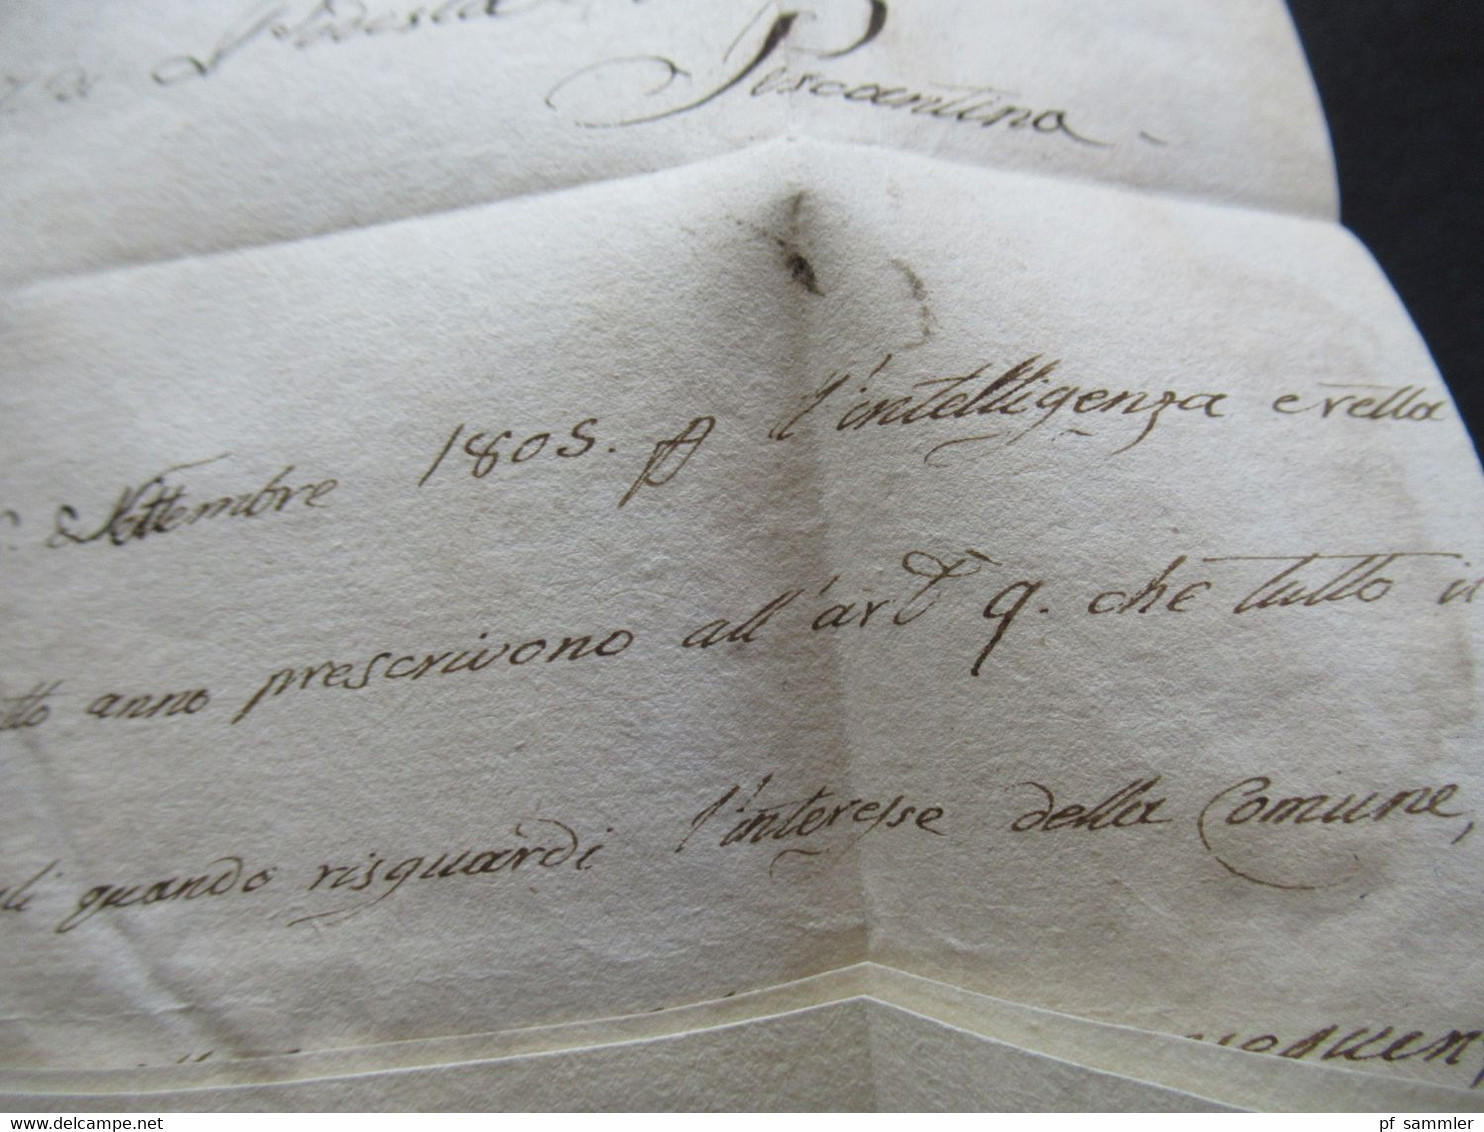 Podestà
Pescantina
Settembre 1805. p l'intelligenza e retta
anno prescrivono all'art 9. che tutto in
quando risguardi l'interesse della Comune,
www.delcampe.net
pf_sammler